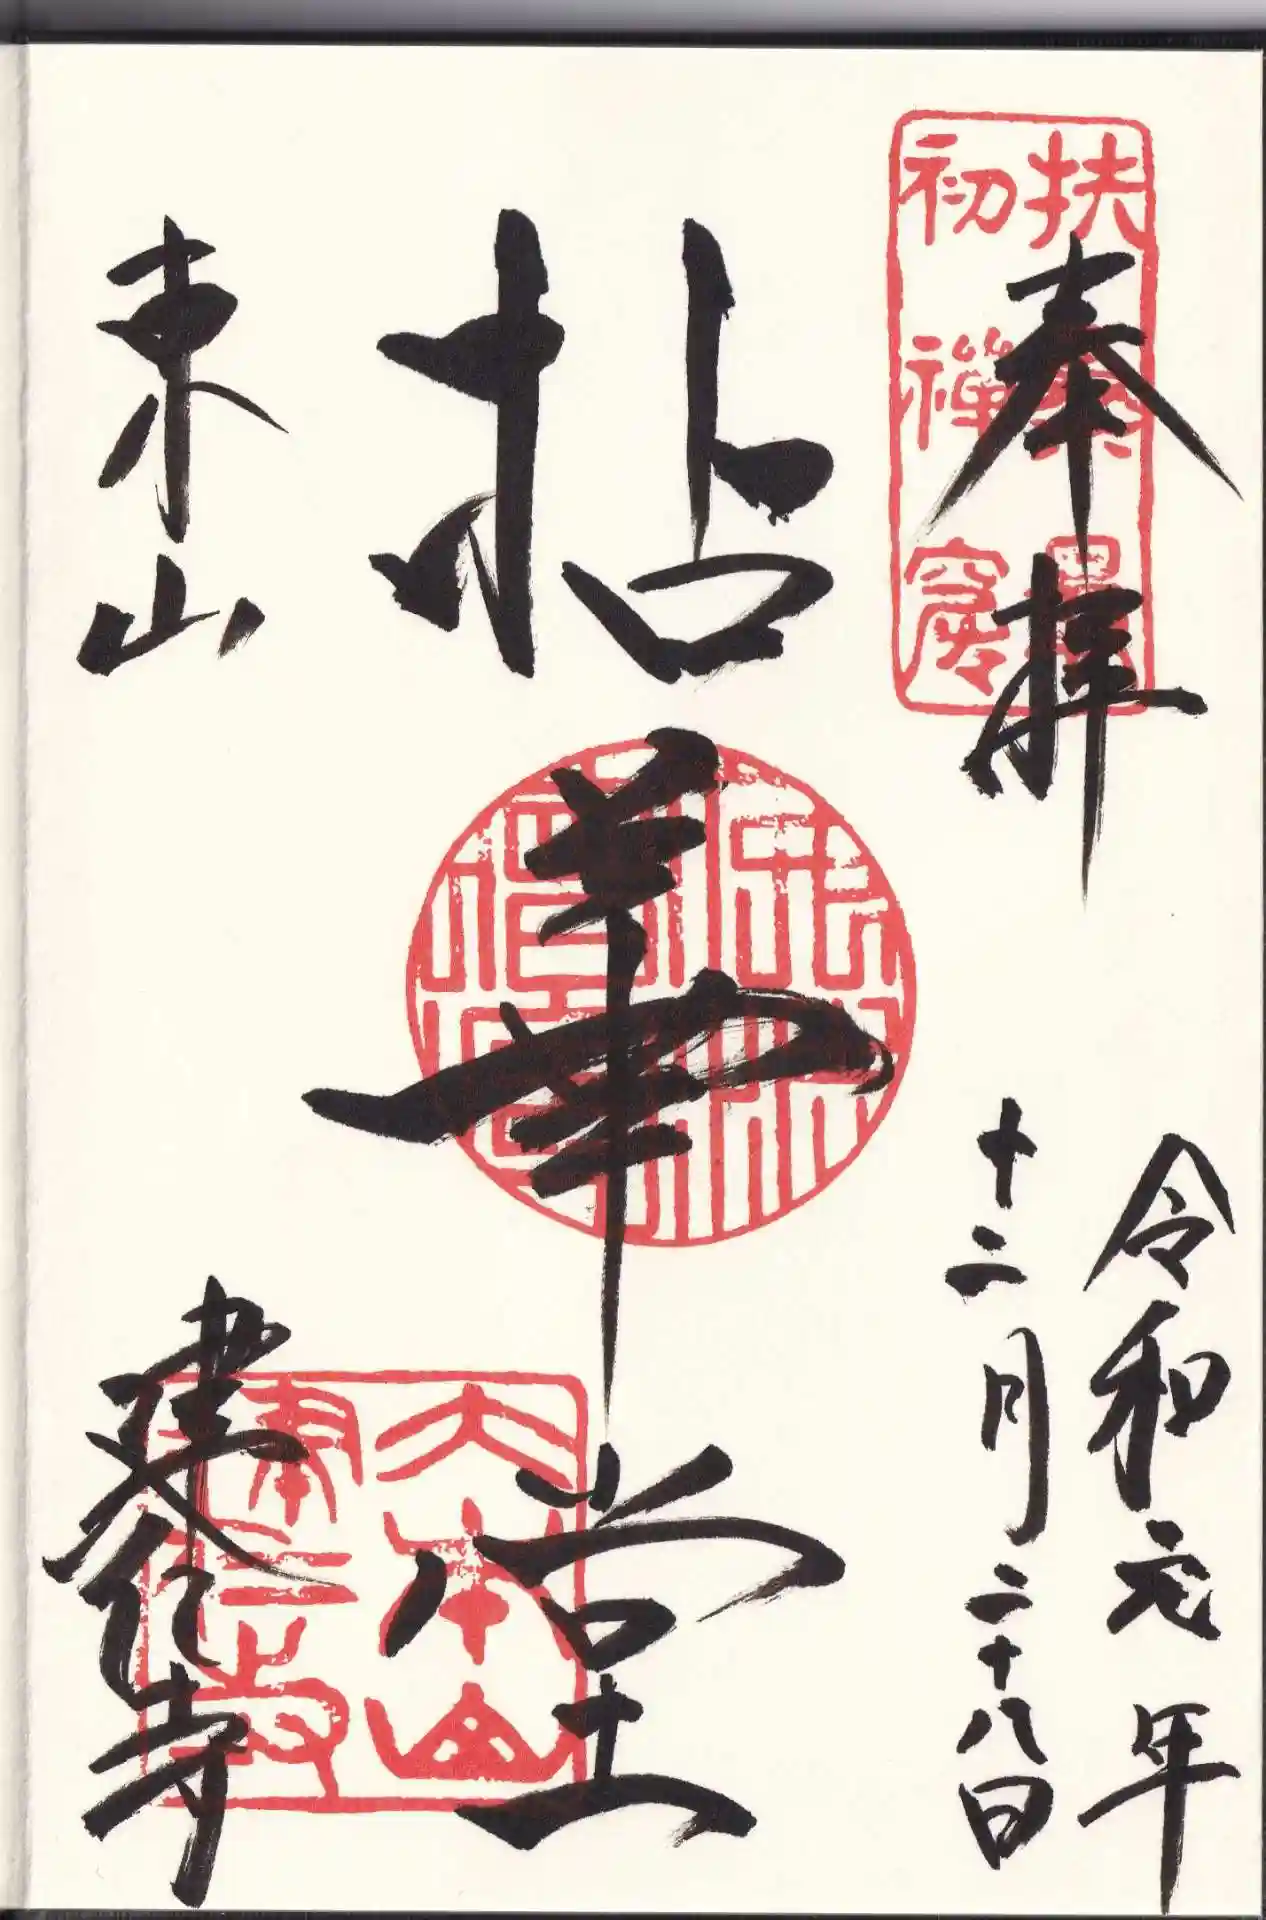 奉拝
令和元年
十二月二十八日
拈華堂
東山
建仁寺
扶桑最
初禅窟
大本山
建仁寺